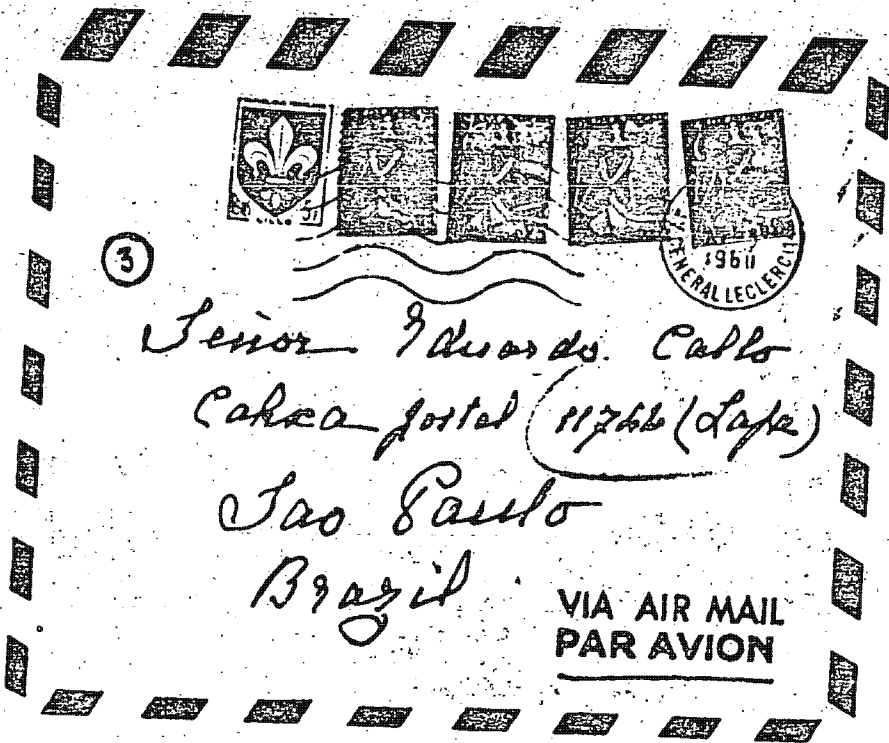 3
196
GENERAL LECLERC (1
Señor Eduardo Callo
Caixa postal 11744 (Lapa)
Sao Paulo
Brazil
VIA AIR MAIL
PAR AVION